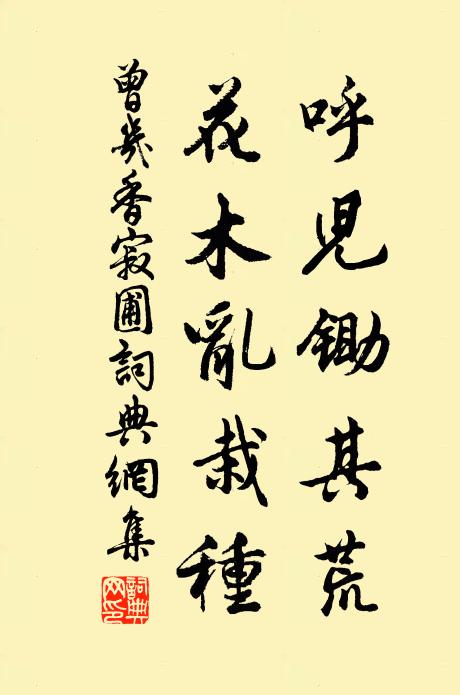 呼児鋤其荒
花木亂栽種
曾幾香寂圃詞典網集
詞典网印